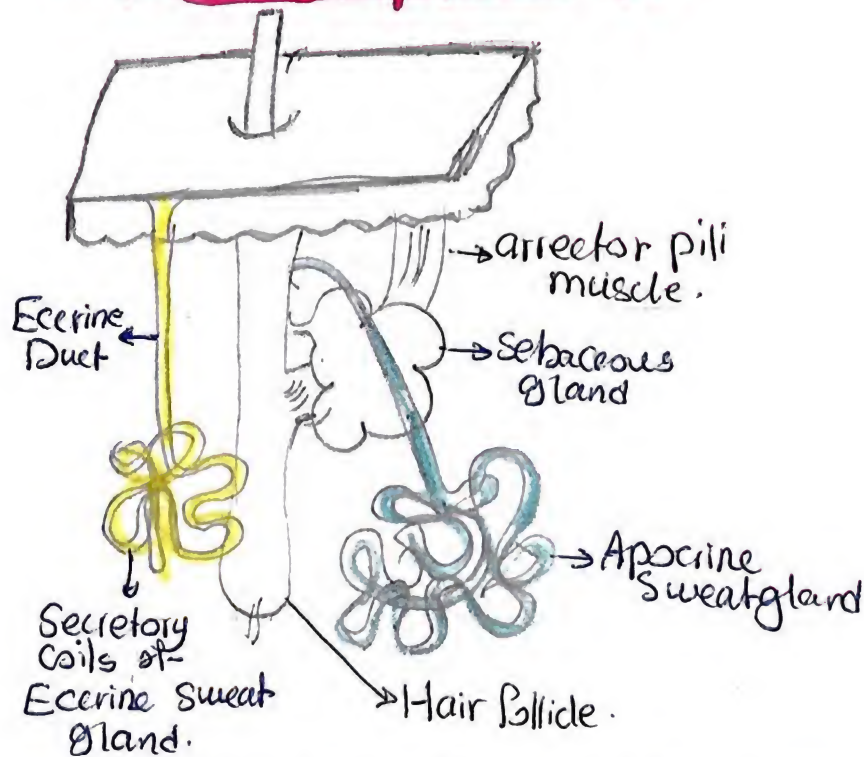 arrector pili
muscle.
Eccrine
Duct
Sebaceous
gland
Apocrine
Sweatgland
Secretory
Coils of
Eccrine Sweat
gland.
Hair follicle.